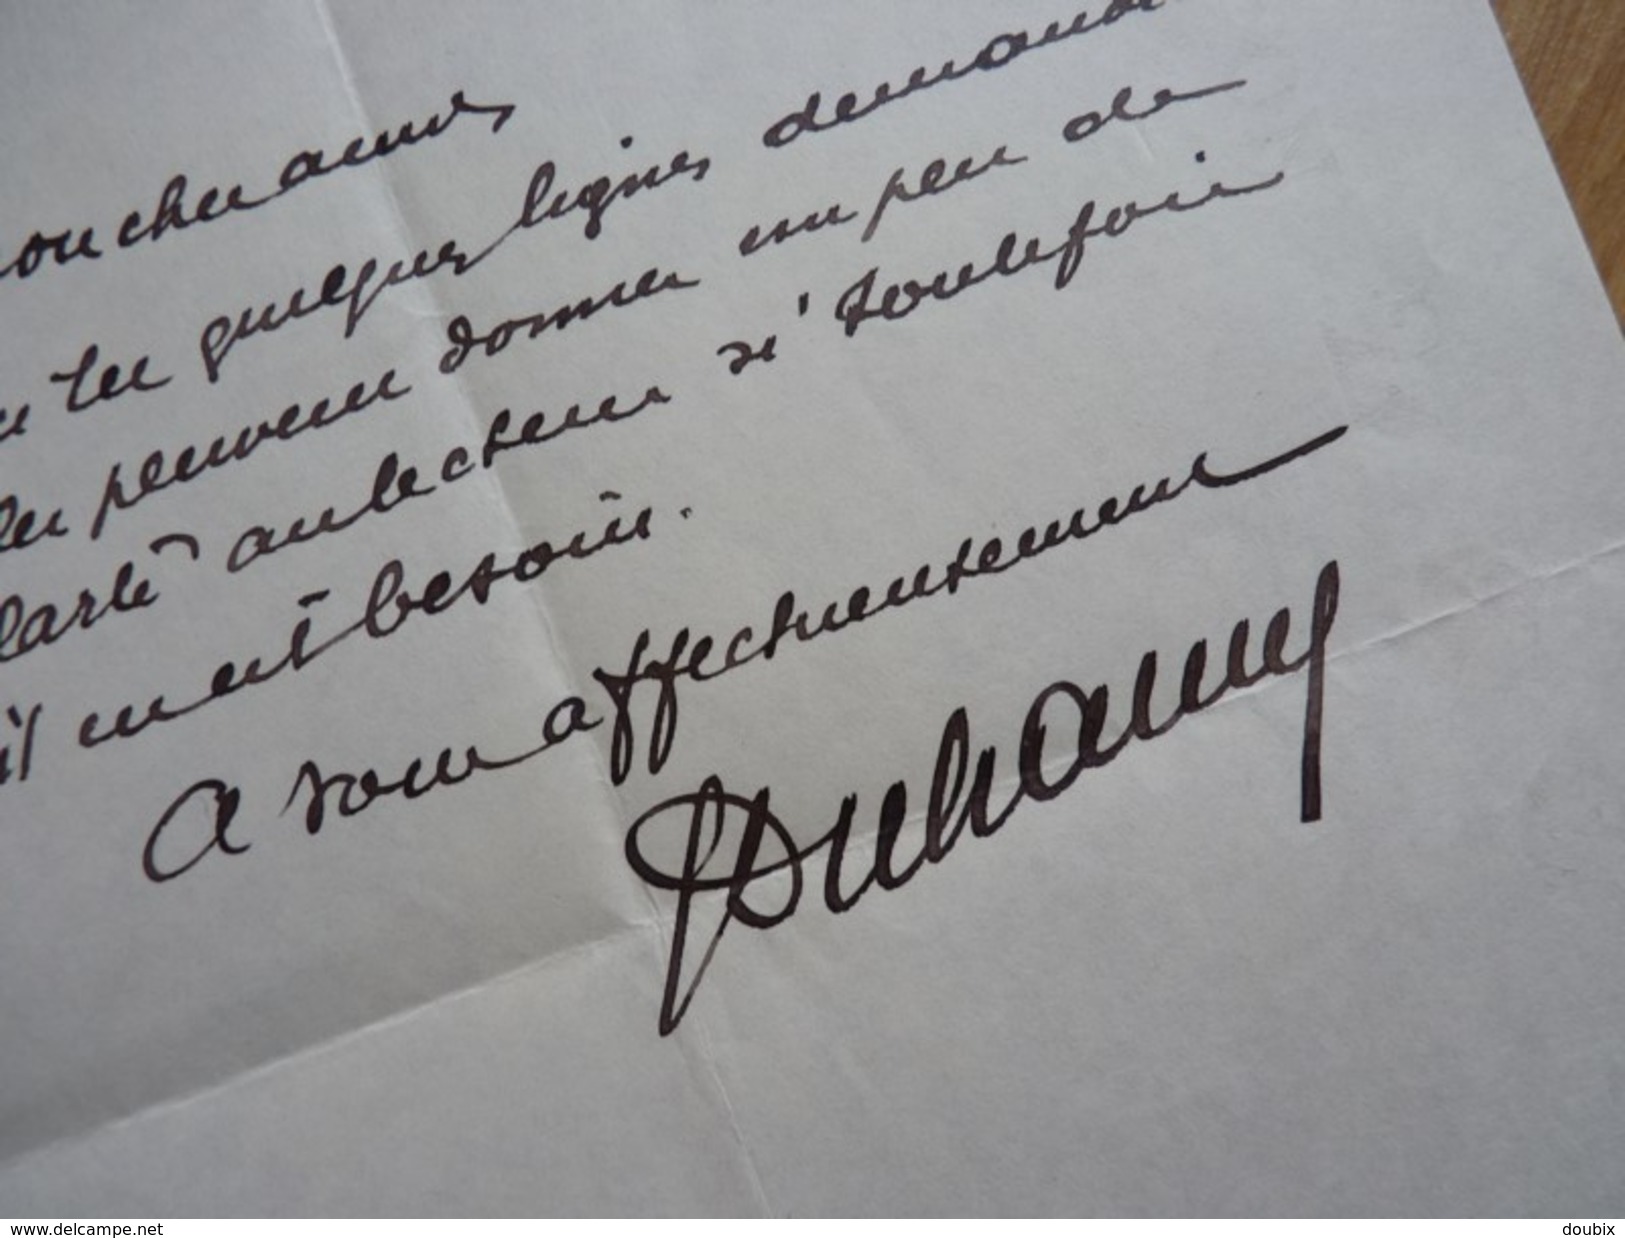 mon cher ami
tu quelques lignes demandé
peuvent donner un peu de
clarté au lecteur si toutefois
il en est besoin.
A vous affectueusement
Duhamel
www.delcampe.net
doubix